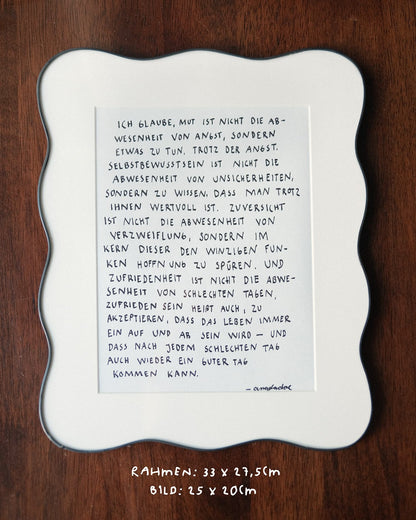 ICH GLAUBE, MUT IST NICHT DIE AB-
WESENHEIT VON ANGST, SONDERN
ETWAS ZU TUN, TROTZ DER ANGST.
SELBSTBEWUSSTSEIN IST NICHT DIE
ABWESENHEIT VON UNSICHERHEITEN,
SONDERN ZU WISSEN, DASS MAN TROTZ
IHNEN WERTVOLL IST. ZUVERSICHT
IST NICHT DIE ABWESENHEIT VON
VERZWEIFLUNG, SONDERN IM
KERN DIESER DEN WINZIGEN FUN-
KEN HOFFNUNG ZU SPÜREN. UND
ZUFRIEDENHEIT IST NICHT DIE ABWE-
SENHEIT VON SCHLECHTEN TAGEN,
ZUFRIEDEN SEIN HEIßT AUCH, ZU
AKZEPTIEREN, DASS DAS LEBEN IMMER
EIN AUF UND AB SEIN WIRD – UND
DASS NACH JEDEM SCHLECHTEN TAG
AUCH WIEDER EIN GUTER TAG
KOMMEN KANN.
RAHMEN: 33 x 27,5cm
BILD: 25 x 20cm